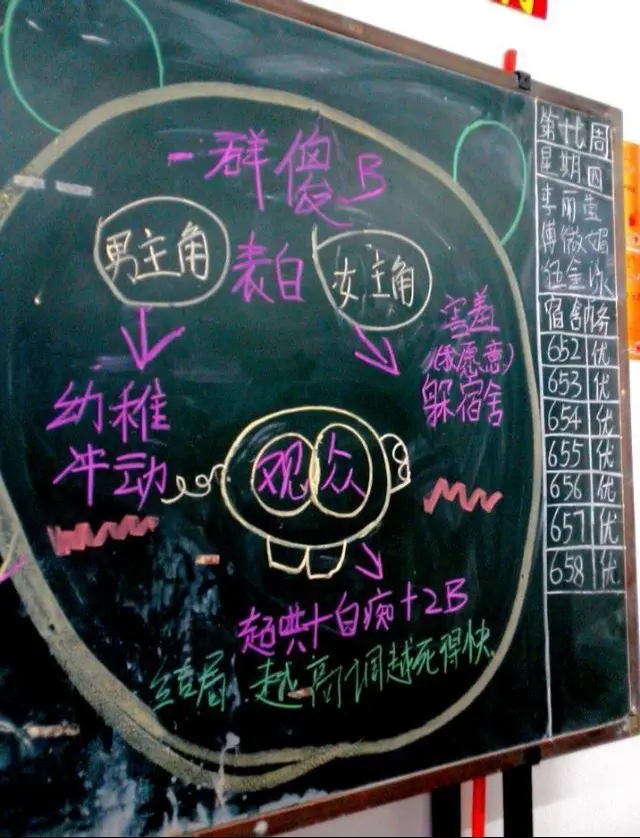 一群傻B
男主角
表白
女主角
害羞
(我愿意)
躲宿舍
幼稚
冲动
观众
起哄+白痴+2B
结局 越高调越死得快
第十周
星期四
李丽萱
傅微媚
伍金冰
宿舍内务
652 优
653 优
654 优
655 优
656 优
657 优
658 优